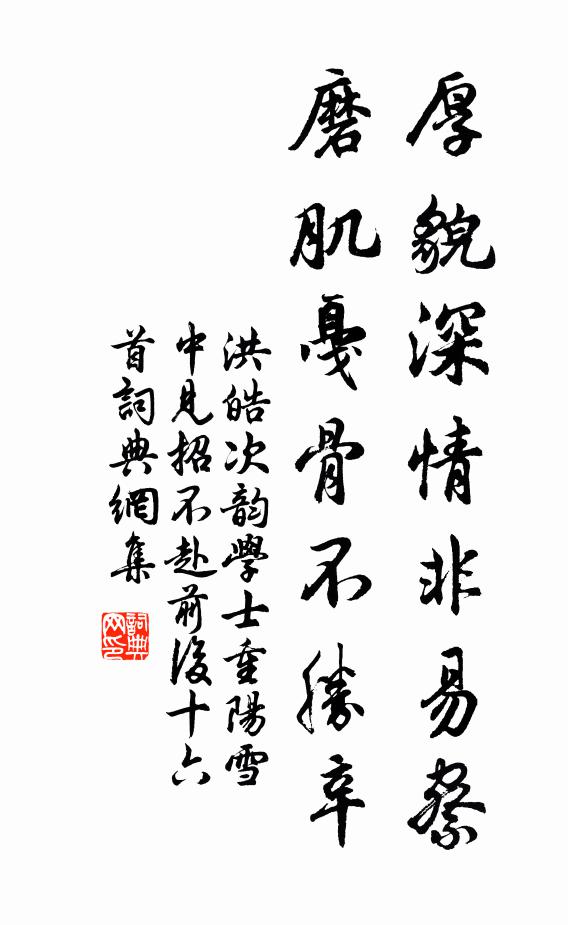 厚貌深情非易察
磨肌戛骨不勝辛
洪皓次韵學士重陽雪
中見招不赴前後十六
首詞典網集
詞典
网印